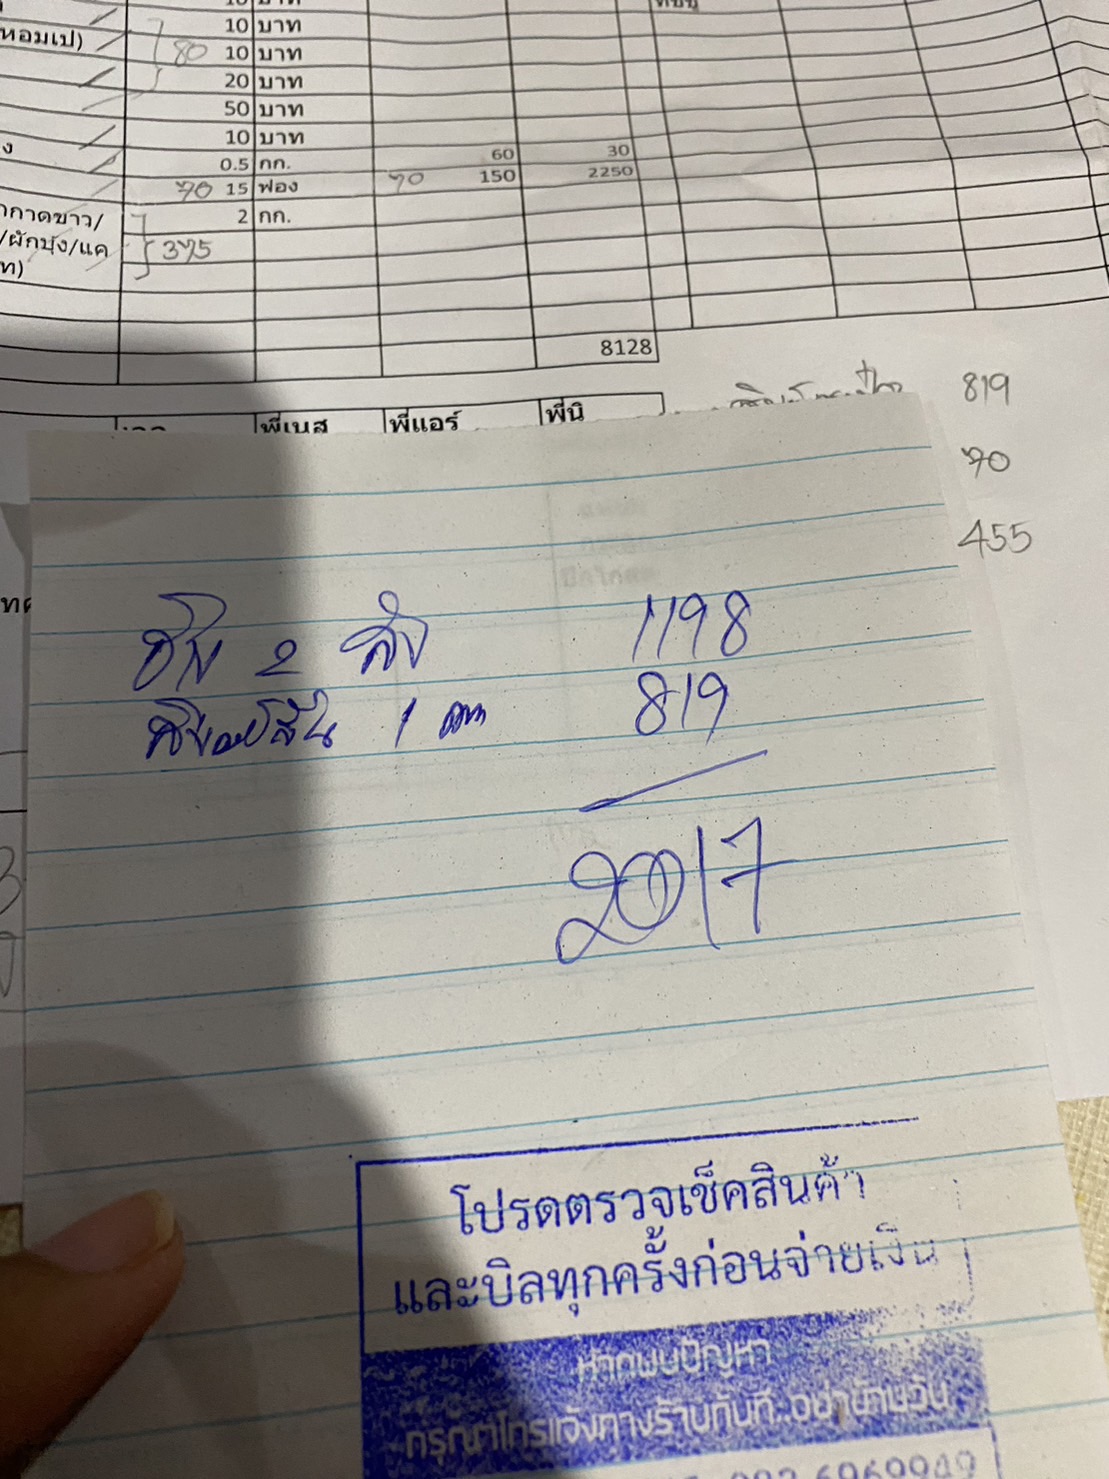 หอมเป)
10 บาท
80 10 บาท
20 บาท
50 บาท
10 บาท
0.5 กก. 60 30
70 15 ฟอง 70 150 2250
2 กก.
กาดขาว/
/ผักบุ้ง/แค
375
8128
819
พี่เนส พี่แอร์ พี่นิ
70
455
2 ลัง 1198
1 819
2017
โปรดตรวจเช็คสินค้า
และบิลทุกครั้งก่อนจ่ายเงิน
หากพบปัญหา
กรุณาโทรแจ้งทางร้านทันที..อย่าข้ามวัน